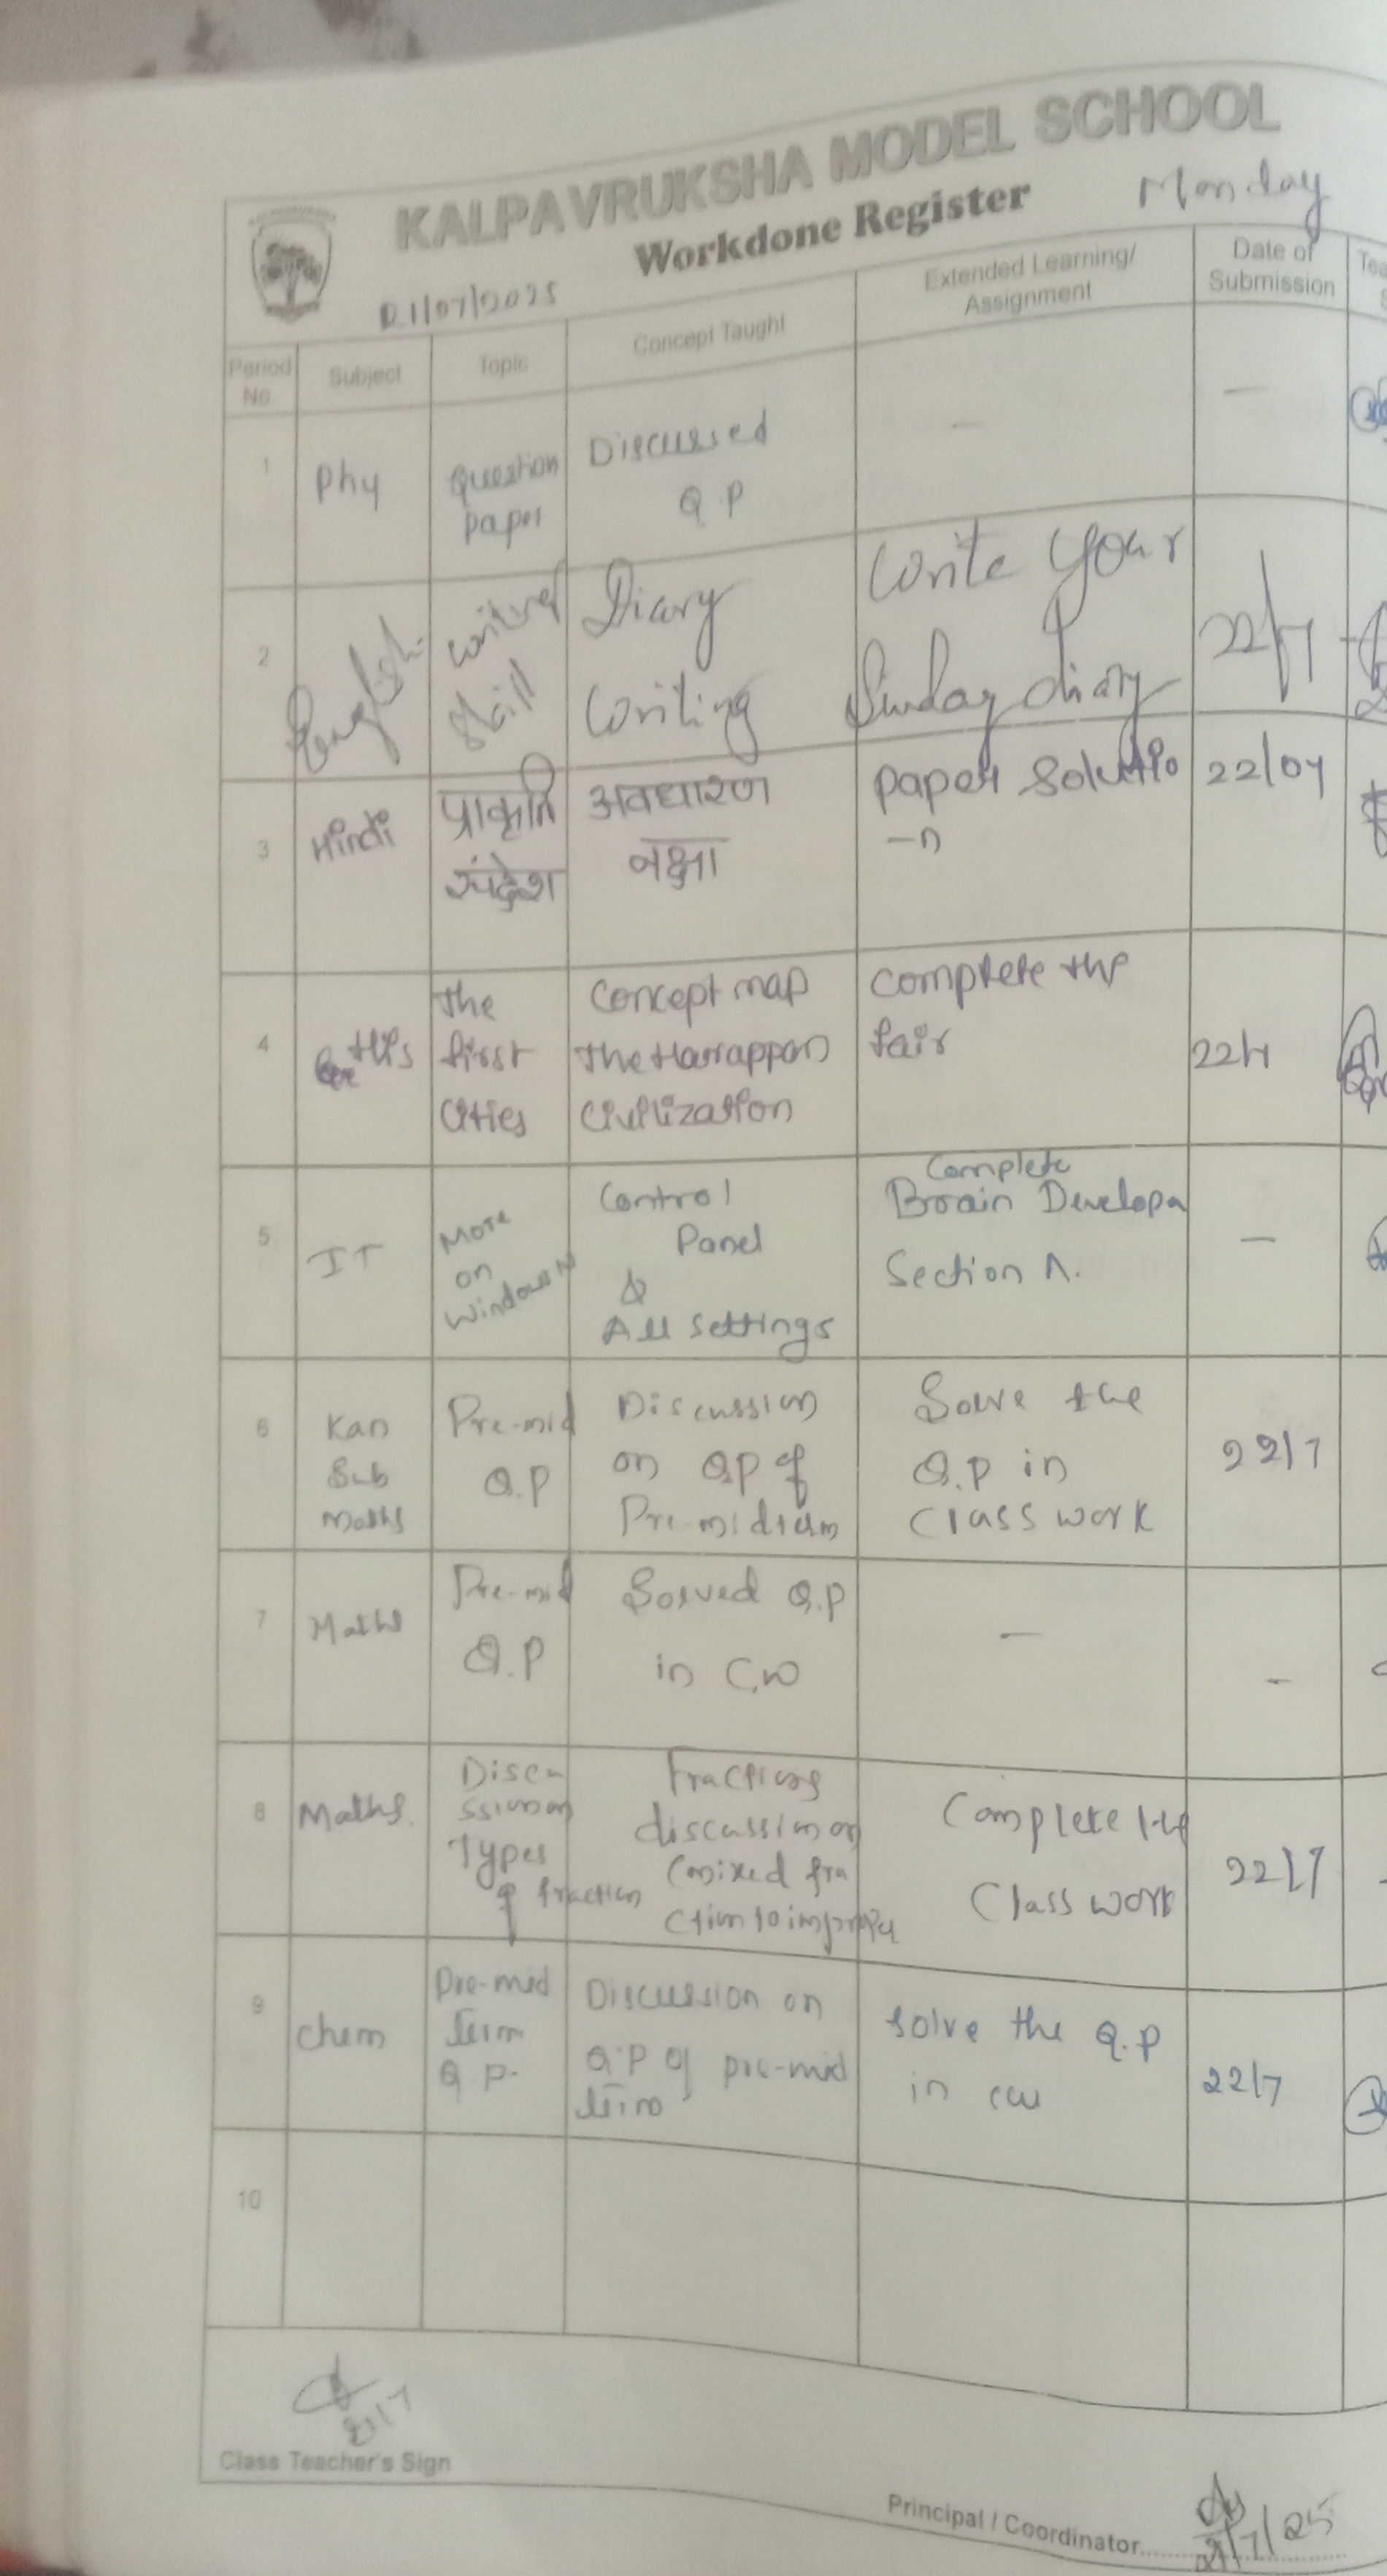 KALPAVRUKSHA MODEL SCHOOL
Workdone Register
Monday
21/07/2025
Period No.
Subject
Topic
Concept Taught
Extended Learning/
Assignment
Date of
Submission
1
Phy
Question
paper
Discussed
Q.P
—
—
2
English
Skill
Diary
Writing
Write your
Sunday diary
22/7
3
Hindi
प्राकृति
संदेश
अवधारण
नक्षा
paper Solutio
-n
22/07
4
His
The
first
Cities
Concept map
The Harrappan
Civilization
complete the
fair
22/7
5
IT
More
on
Windows
Control
Panel
&
All settings
Complete
Brain Developm
Section A.
—
6
Kan
Sub
Maths
Pre-mid
Q.P
Discussion
on QP of
Pre-midterm
Solve the
Q.P in
Class work
22/7
7
Maths
Pre-mid
Q.P
Solved Q.P
in C.W
—
-
8
Maths.
Discu
ssion on
Types
of fraction
Fractions
discussion on
(mixed fra
ction to improper
Complete the
Class work
22/7
9
chem
Pre-mid
term
Q.P.
Discussion on
Q.P of pre-mid
term
Solve the Q.P
in cw
22/7
10
21/7
Class Teacher's Sign
Principal / Coordinator
21/7/25